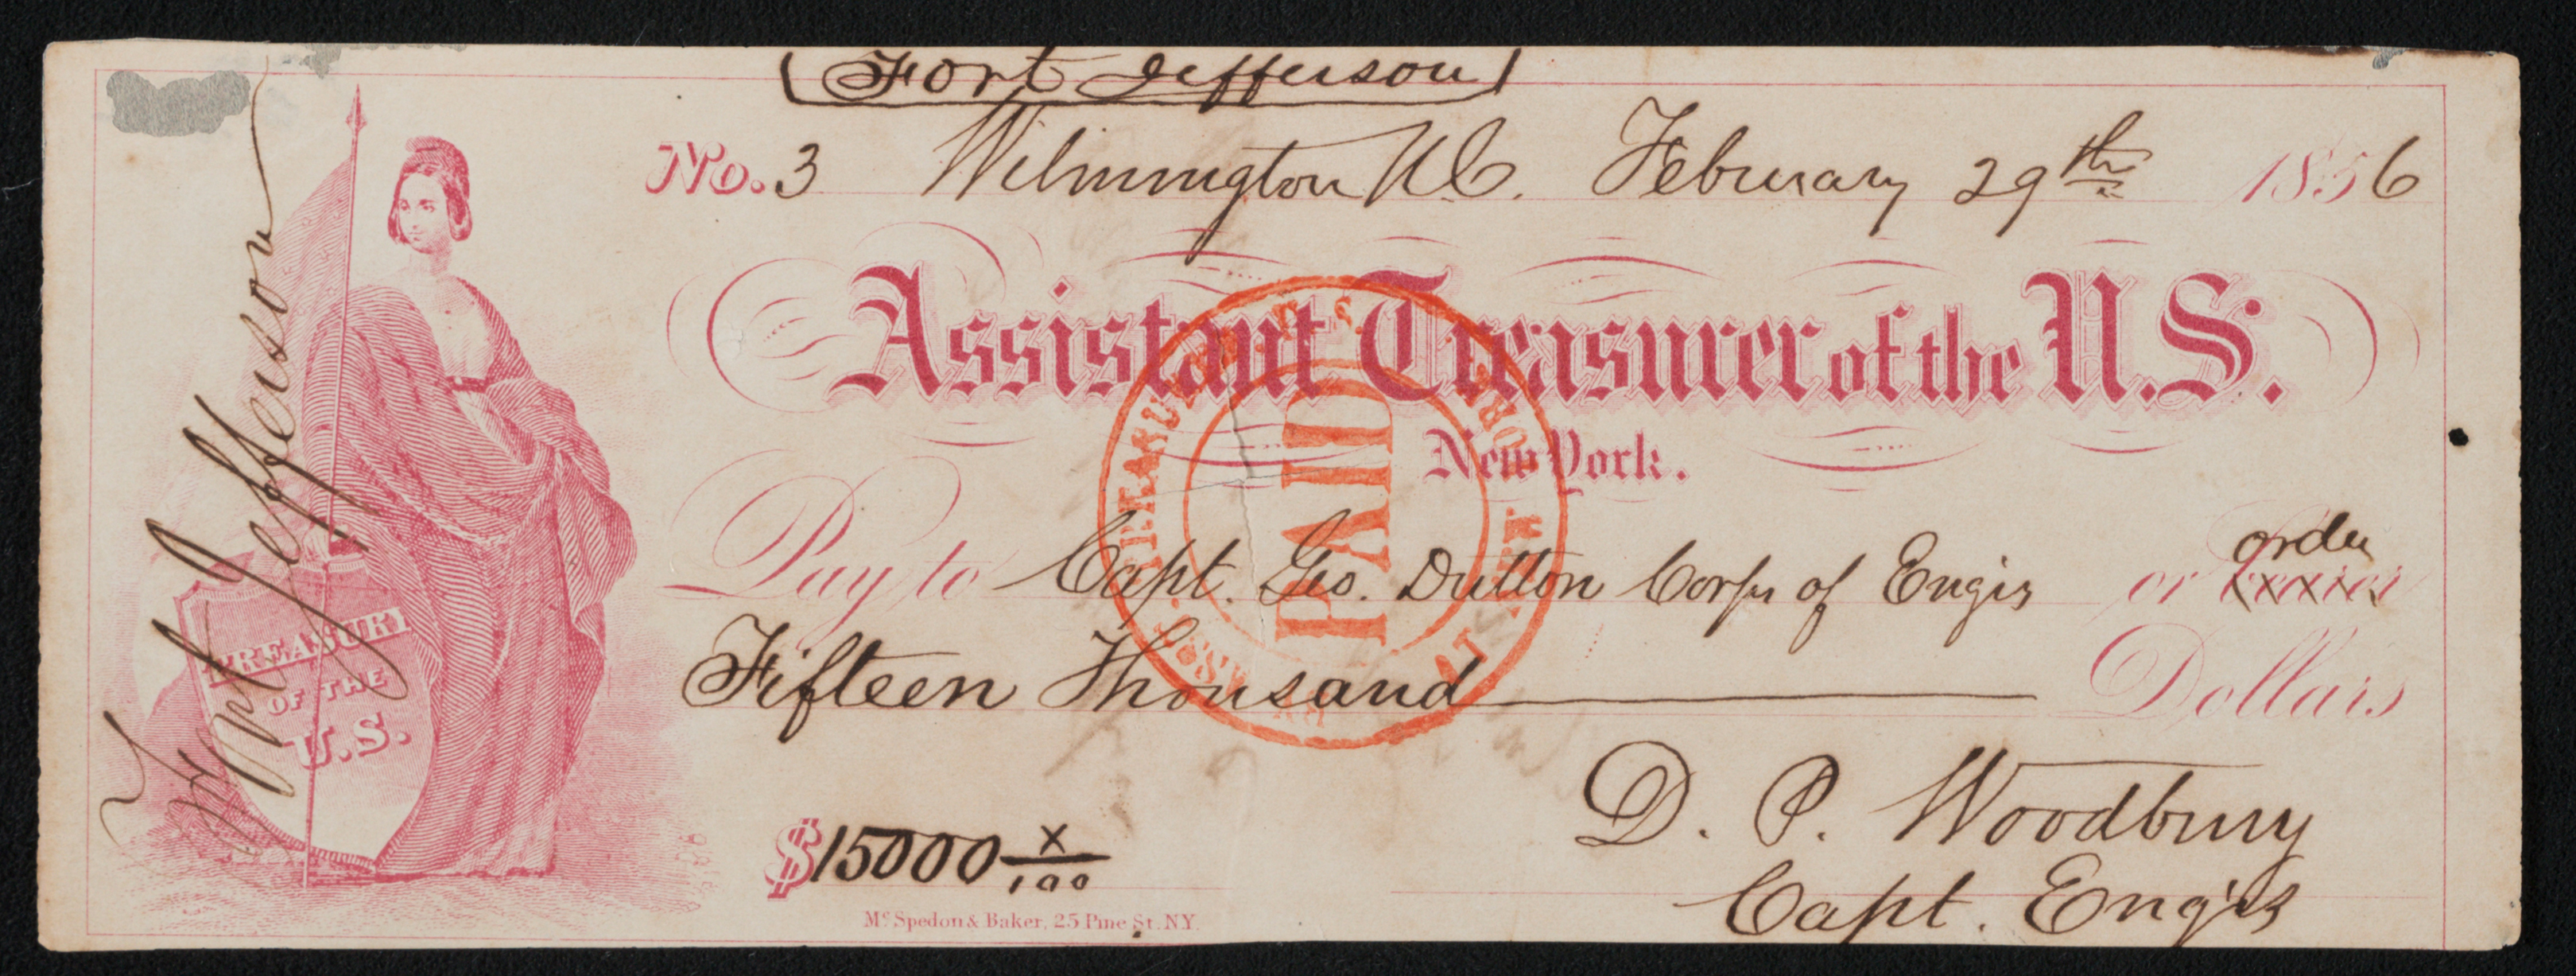 (Fort Jefferson)
No. 3 Wilmington N.C. February 29th 1856
Assistant Treasurer of the U.S.
New York.
Pay to Capt. Geo. Dutton Corps of Engrs or bearer order
Fifteen Thousand Dollars
$15000 x/100
D. P. Woodbury
Capt. Eng'rs
Mc Spedon & Baker, 25 Pine St. N.Y.
Fort Jefferson
TREASURY
OF THE
U.S.
PAID